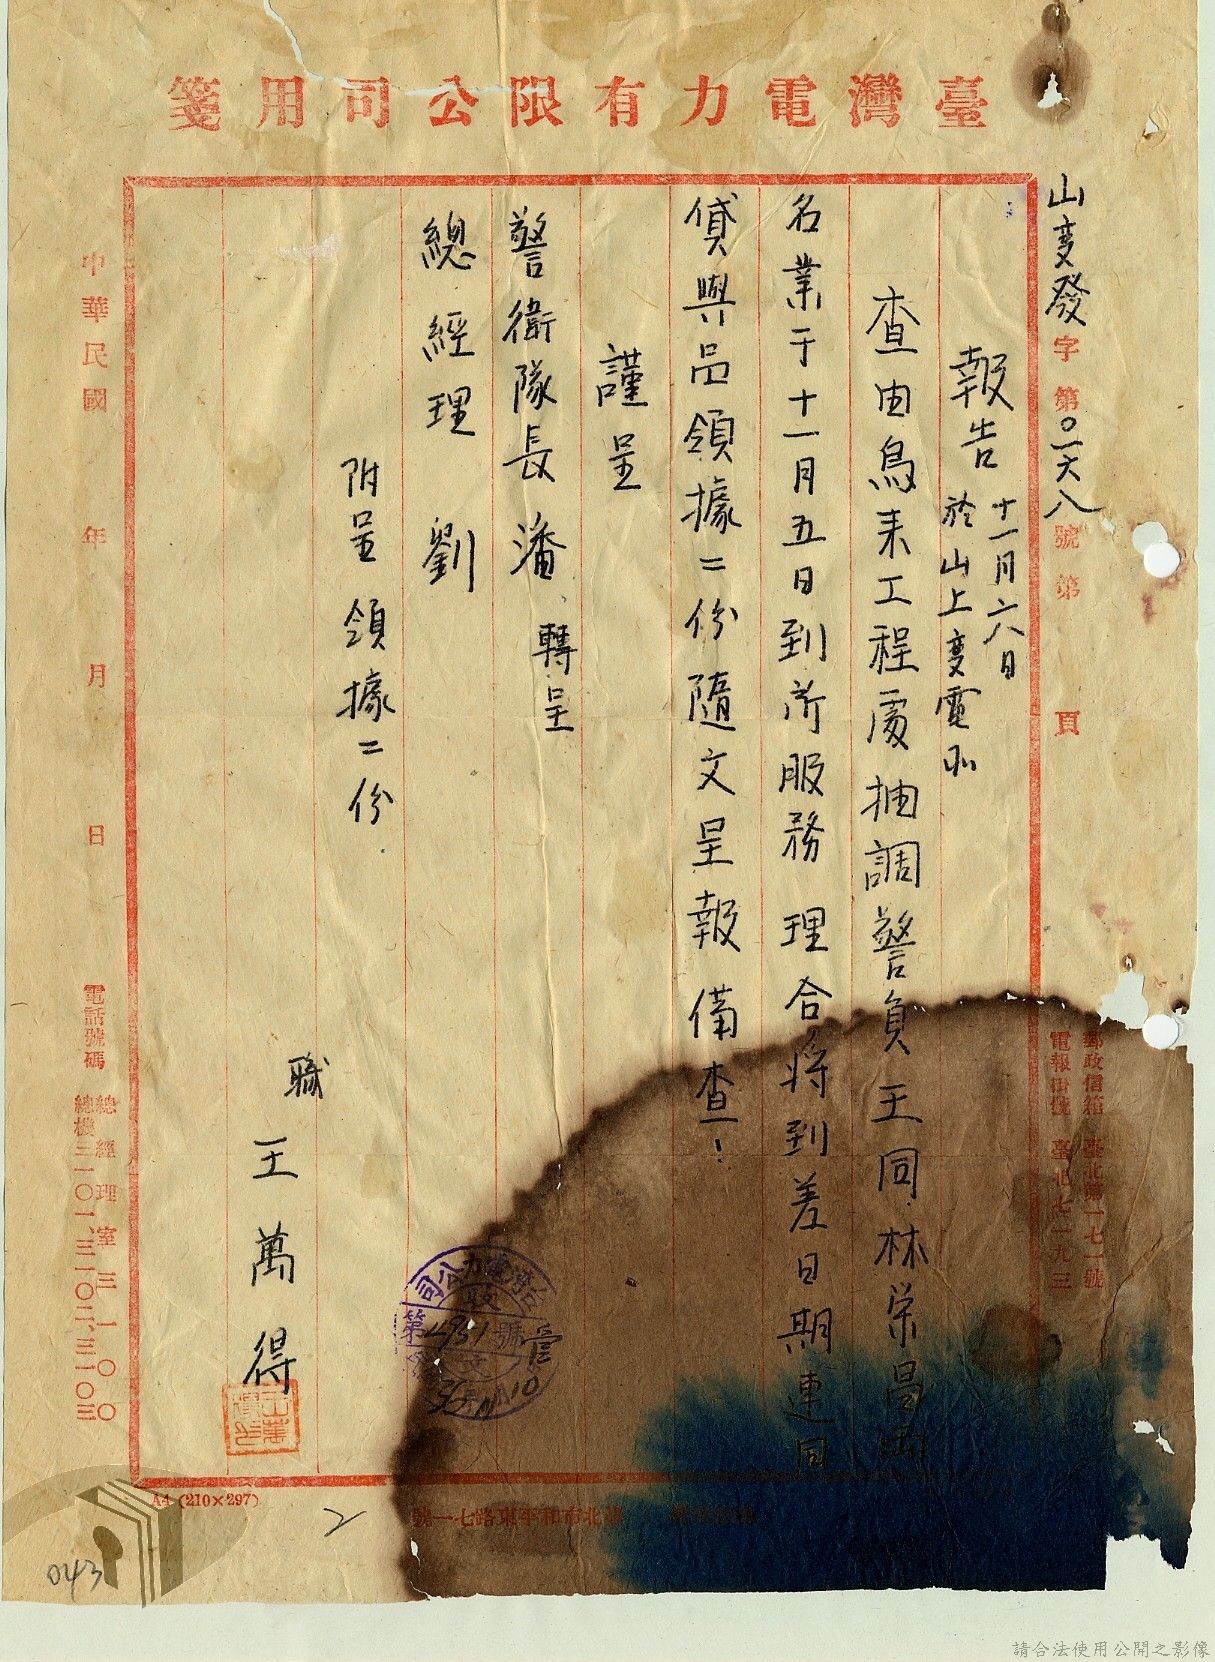 臺灣電力有限公司用箋
山變發字第〇一六八號第 頁
報告 十一月六日
於山上變電所
查由烏来工程處抽調警員王同林荣昌兩
名業于十一月五日到所服務理合将到差日期連同
貸與品領據二份隨文呈報備查!
謹呈
警衛隊長潘 轉呈
總經理劉
附呈領據二份
職 王萬得
中華民國 年 月 日
郵政信箱 臺北第一七一號
電報掛號 臺北七一九三
電話號碼 總經理室三一〇〇
總機三一〇一、三一〇二、三一〇三
號一七路東平和市北
司公力電灣台
收
第4951號
文
36 11 10
A4 (210×297)
2
043
請合法使用公開之影像